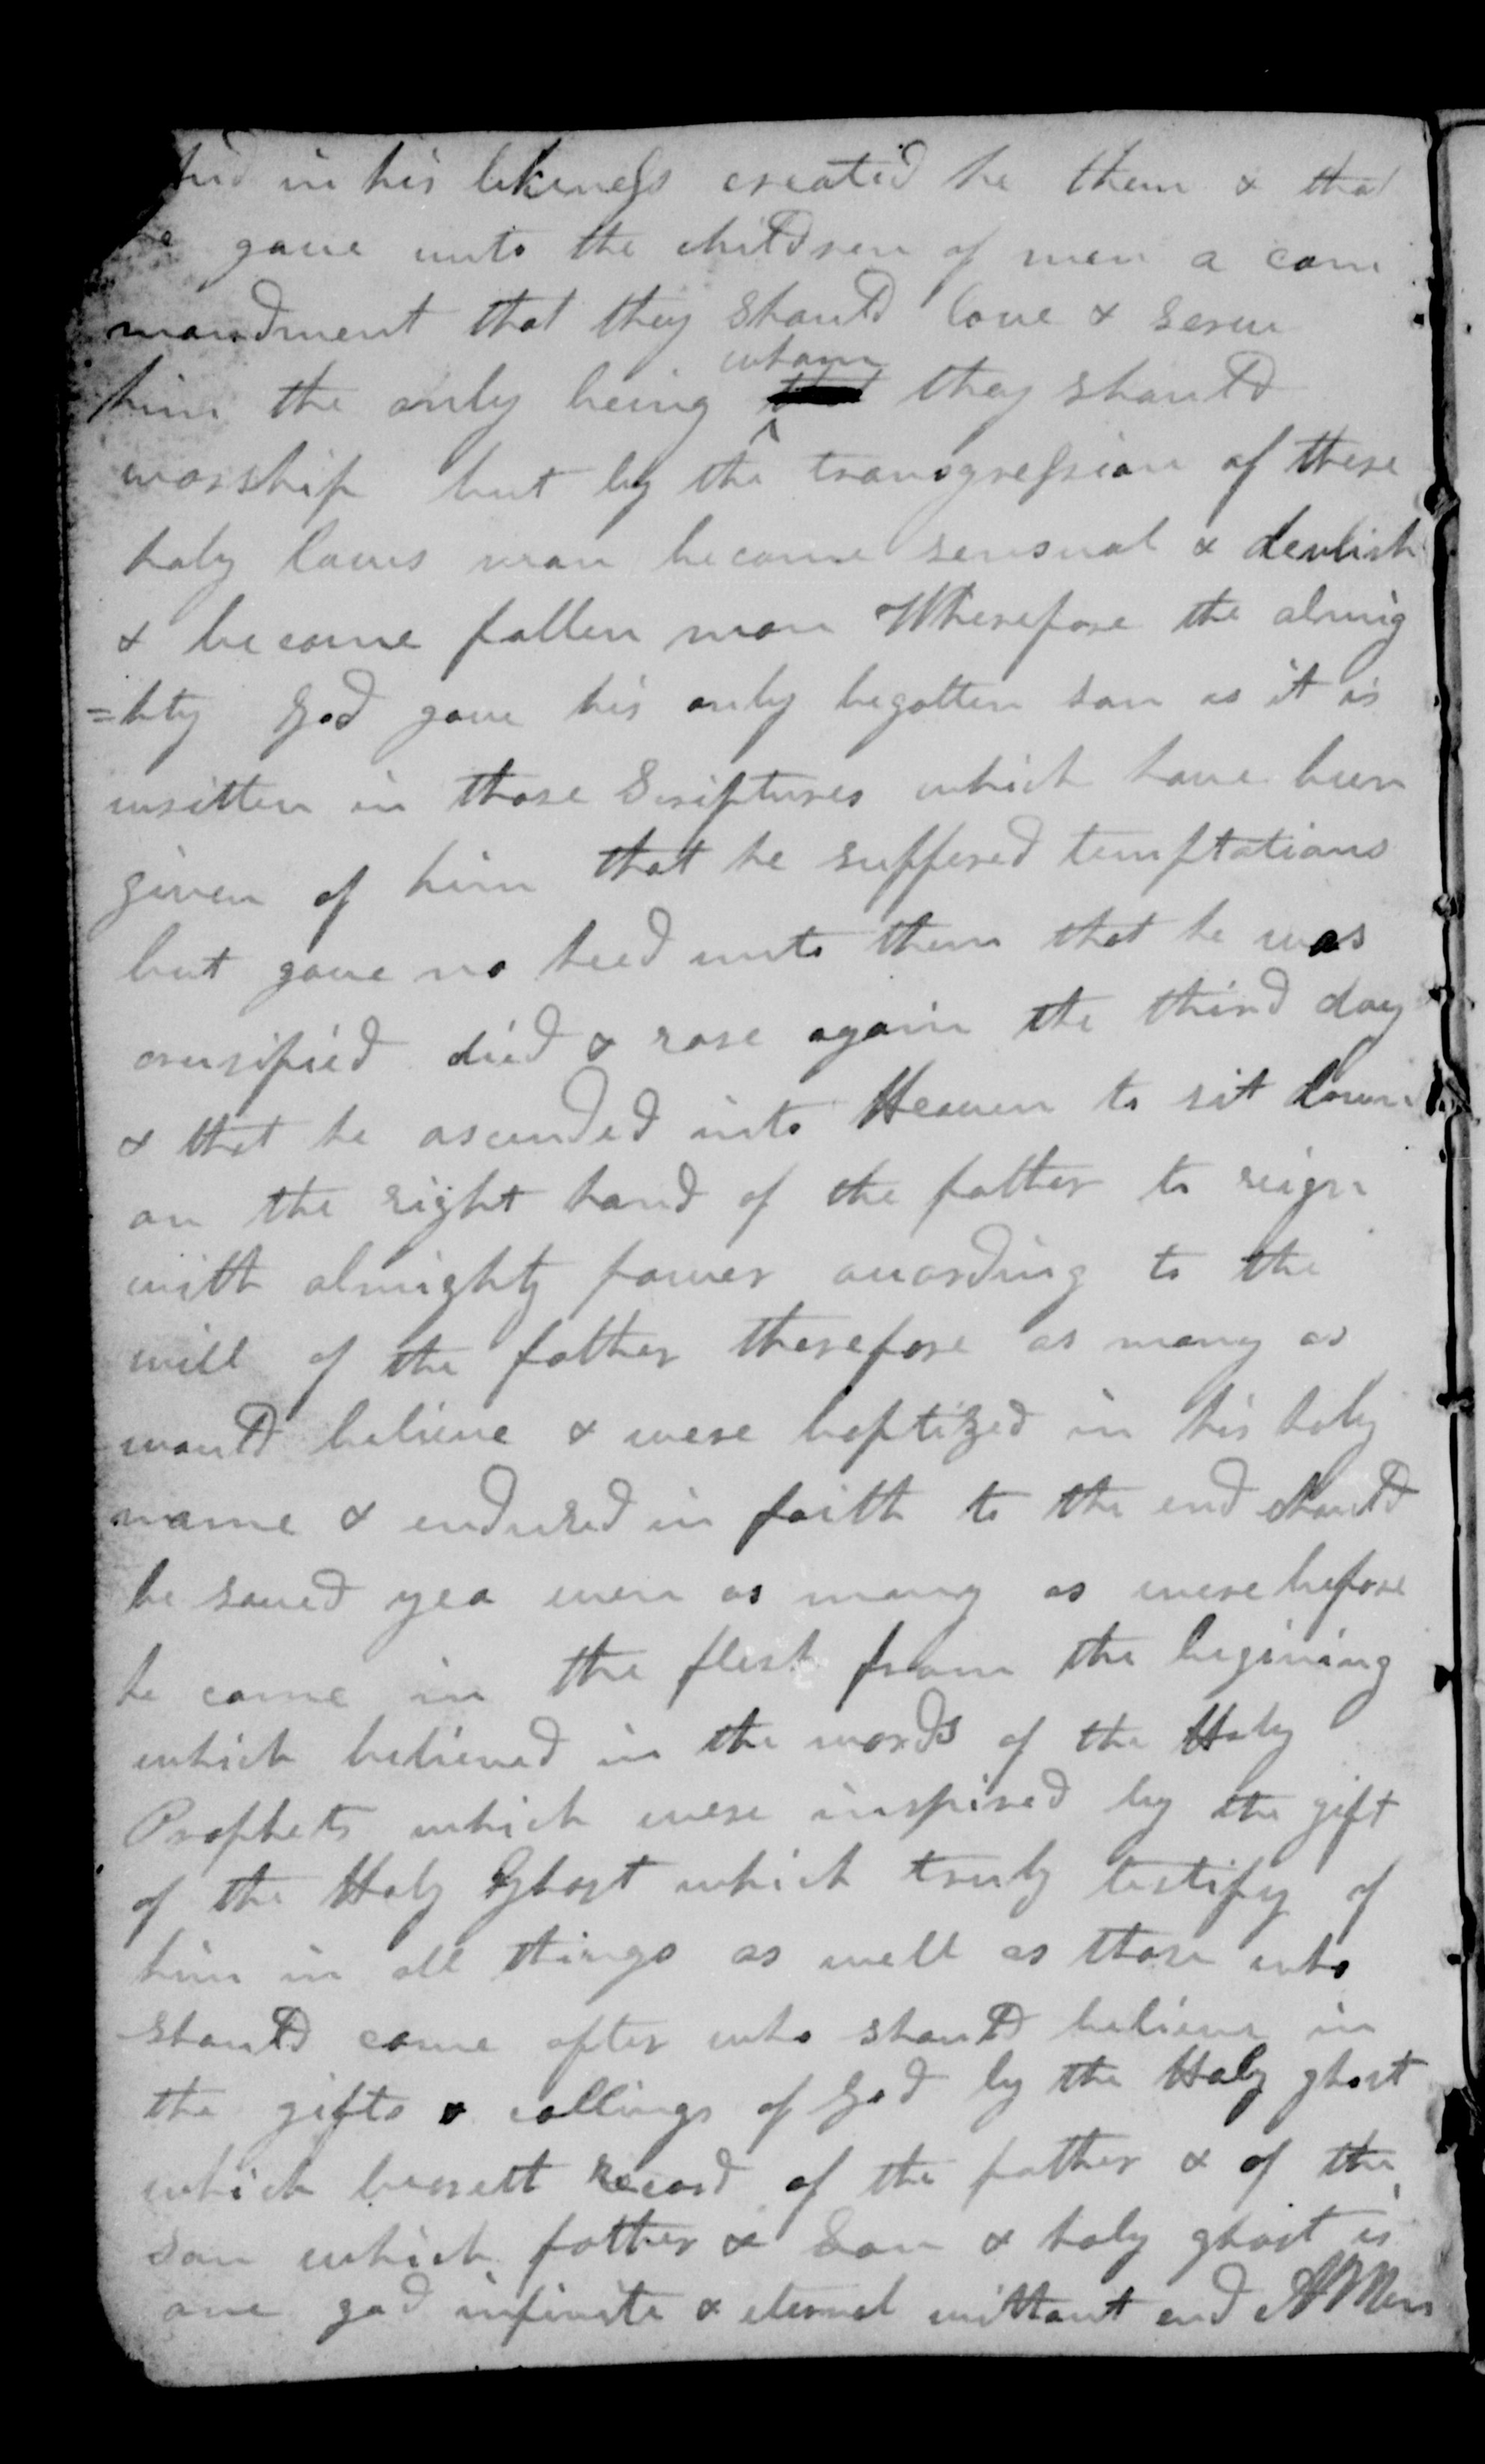 and in his likeness created he them & that
he gave unto the children of men a com
mandment that they should love & serve
him the only being whom they should
worship but by the transgression of these
holy laws man became sensual & devlish
& became fallen man Wherefore the almig
=hty God gave his only begotten son as it is
written in those Scriptures which have been
given of him that he suffered temptations
but gave no heed unto them that he was
crusified died & rose again the third day
& that he ascended into Heaven to sit down
on the right hand of the father to reign
with almighty power acording to the
will of the father therefore as many as
would believe & were baptized in his holy
name & endured in faith to the end should
be saved yea even as many as were before
he came in the flesh from the begining
which believed in the words of the Holy
Prophets which were inspired by the gift
of the Holy Ghost which truly testify of
him in all things as well as those who
should come after who should believe in
the gifts & callings of God by the Holy ghost
which beareth record of the father & of the
son which father & Son & holy ghost is
one god infinite & eternal without end AMen